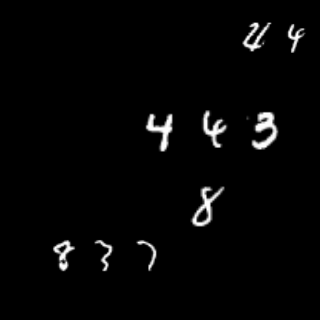 4 4
4 4 3
8
8 3 7